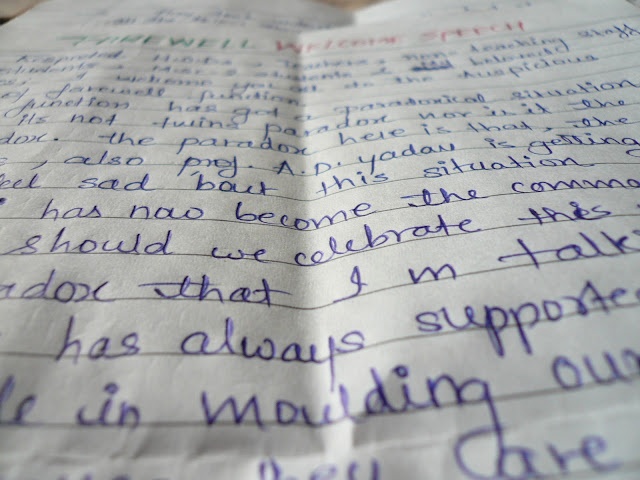 FAREWELL WELCOME SPEECH
Respected H.O.D's, Teachers, non-teaching staff
students & students & beloved
I welcome you all to the Auspicious
of farewell function
function has got a paradoxical situation
its not twins paradox nor is it the
dox. the paradox here is that, the
, also prof. A.D. Yadav is getting
feel sad bout this situation
has now become the comma
should we celebrate this
adox that I m talk
has always supporte
le in moulding our
they Care